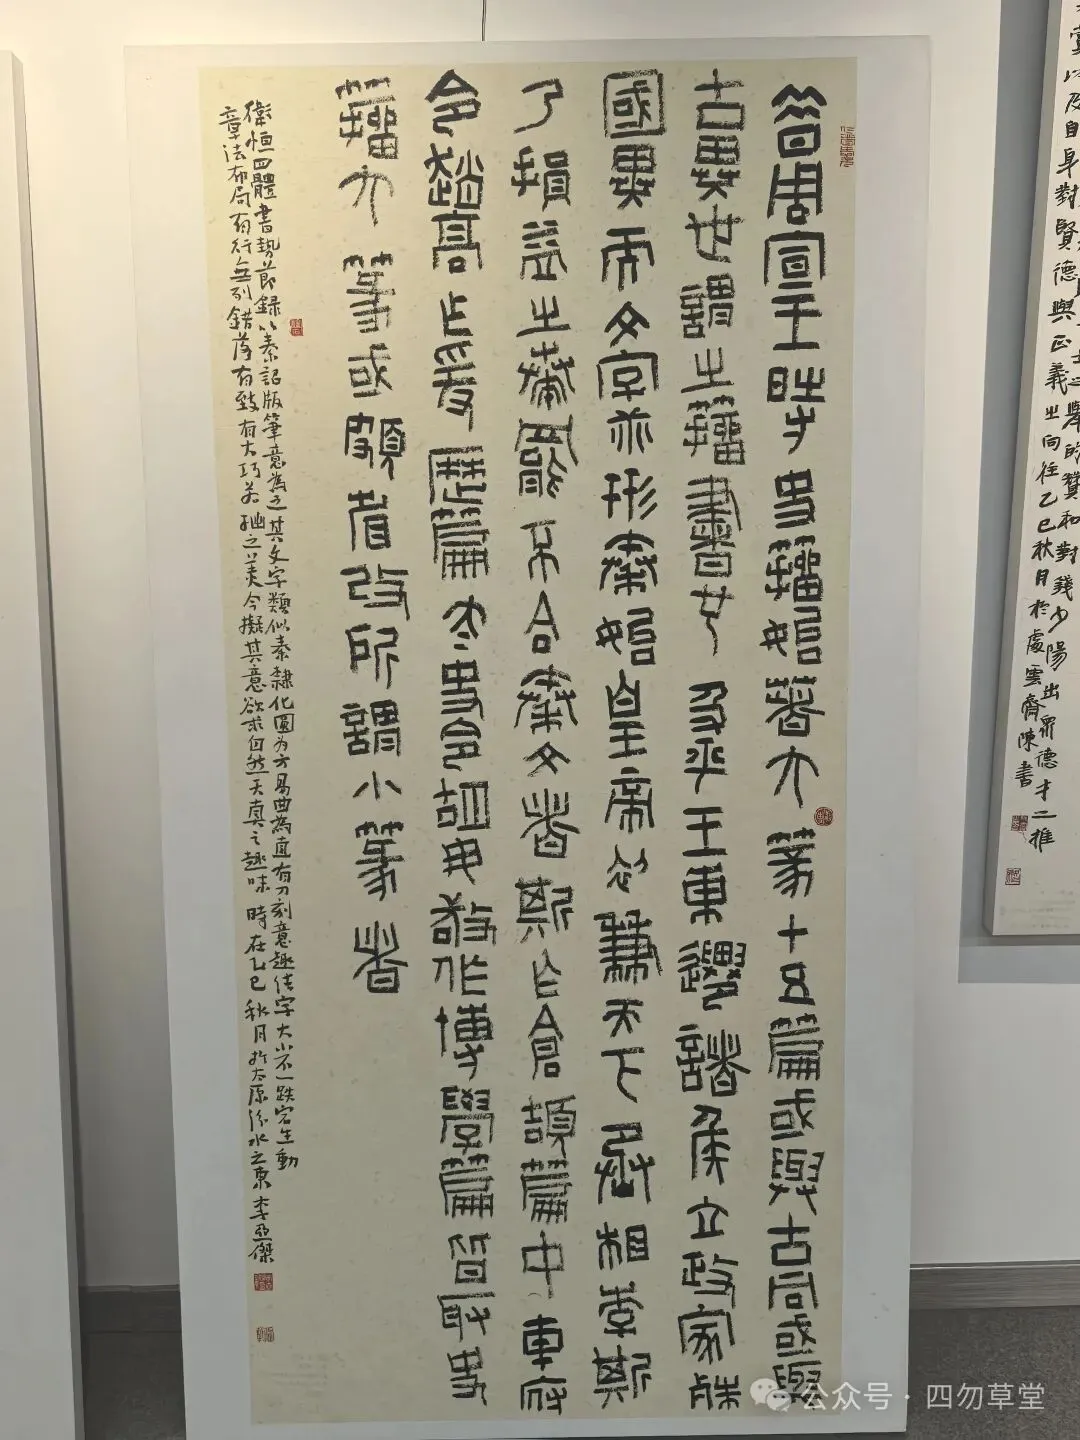 昔周宣王時史籀始著大篆十五篇或與古同或與
古異世謂之籀書也及平王東遷諸侯立政家殊
國異而文字乖形秦始皇帝初兼天下丞相李斯
乃損益之奏罷不合秦文者斯作倉頡篇中車府
令趙高作爰歷篇太史令胡毋敬作博學篇皆取史
籀大篆或頗省改所謂小篆者
衛恒四體書勢節錄以秦詔版筆意為之其文字類似秦隸化圓為方易曲為直有刀刻意趣佳字大小不一跌宕生動
章法布局有行無列錯落有致有大巧若拙之美今擬其意欲求自然天真之趣味時在乙巳秋月於太原汾水之東李亞傑
舉的贊和對錢少陽出眾德才之推
以及自身對賢德與正義之向往乙巳秋月於處雲齋陳書
公众号·四勿草堂